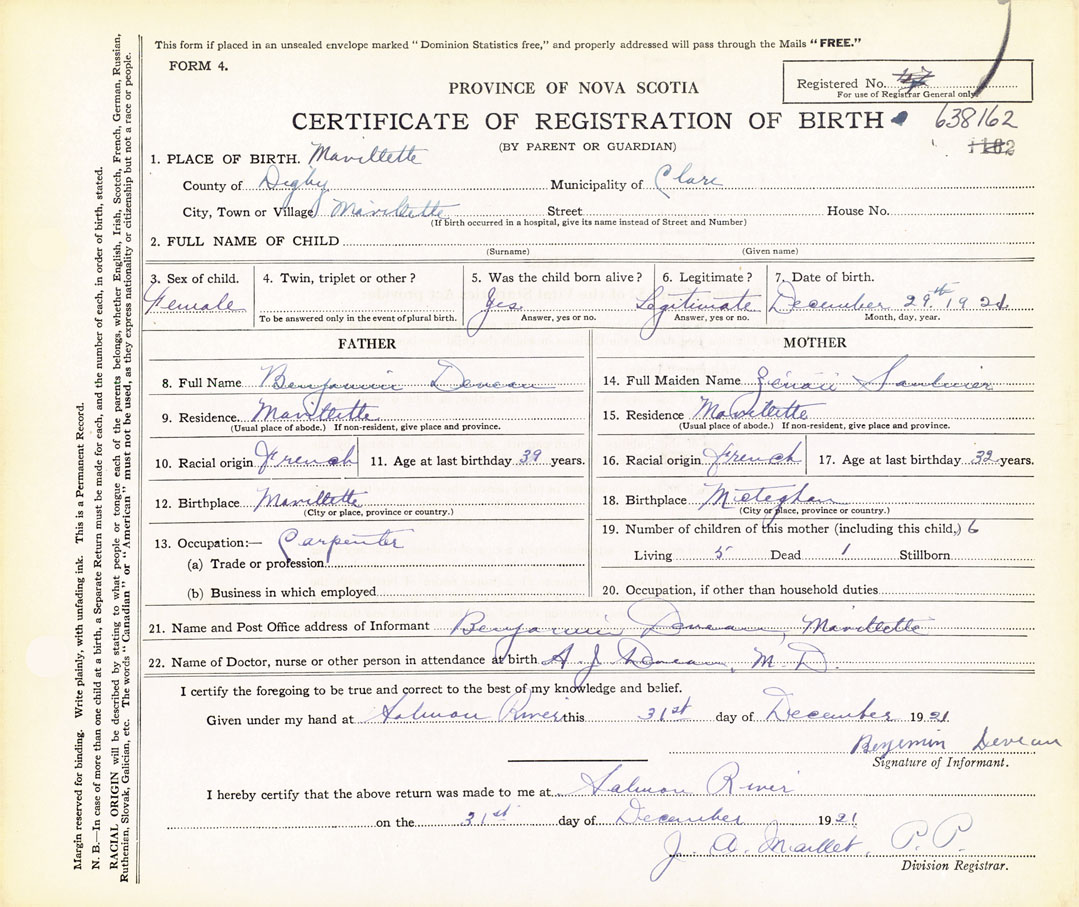 This form if placed in an unsealed envelope marked "Dominion Statistics free," and properly addressed will pass through the Mails "FREE."
FORM 4.
Registered No.
For use of Registrar General only
PROVINCE OF NOVA SCOTIA
CERTIFICATE OF REGISTRATION OF BIRTH
638162
1182
(BY PARENT OR GUARDIAN)
1. PLACE OF BIRTH. Mavillette
County of Digby Municipality of Clare
City, Town or Village Mavillette Street House No.
(If birth occurred in a hospital, give its name instead of Street and Number)
2. FULL NAME OF CHILD
(Surname) (Given name)
3. Sex of child. 4. Twin, triplet or other? 5. Was the child born alive? 6. Legitimate? 7. Date of birth.
Female Yes Legitimate December 29th 1921
To be answered only in the event of plural birth. Answer, yes or no. Answer, yes or no. Month, day, year.
FATHER
8. Full Name Benjamin Deveau
9. Residence. Mavillette
(Usual place of abode.) If non-resident, give place and province.
10. Racial origin French 11. Age at last birthday 39 years.
12. Birthplace Mavillette
(City or place, province or country.)
13. Occupation:— Carpenter
(a) Trade or profession
(b) Business in which employed
MOTHER
14. Full Maiden Name Saulnier
15. Residence Mavillette
(Usual place of abode.) If non-resident, give place and province.
16. Racial origin French 17. Age at last birthday 32 years.
18. Birthplace Meteghan
(City or place, province or country.)
19. Number of children of this mother (including this child,) 6
Living 5 Dead 1 Stillborn
20. Occupation, if other than household duties
21. Name and Post Office address of Informant Benjamin Deveau, Mavillette
22. Name of Doctor, nurse or other person in attendance at birth A. J. Deveau, M. D.
I certify the foregoing to be true and correct to the best of my knowledge and belief.
Given under my hand at Salmon River this 31st day of December 1921
Benjimin Deveau
Signature of Informant.
I hereby certify that the above return was made to me at Salmon River
on the 31st day of December 1921
J. A. Maillet, P. P.
Division Registrar.
Margin reserved for binding. Write plainly, with unfading ink. This is a Permanent Record.
N. B.—In case of more than one child at a birth, a Separate Return must be made for each, and the number of each, in order of birth, stated.
RACIAL ORIGIN will be described by stating to what people or tongue each of the parents belongs, whether English, Irish, Scotch, French, German, Russian,
Ruthenian, Slovak, Galician, etc. The words "Canadian" or "American" must not be used, as they express nationality or citizenship but not a race or people.